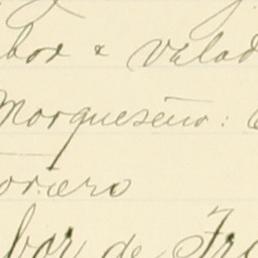 bor & Valad
Morqueseño:
orrero
bor de Fra